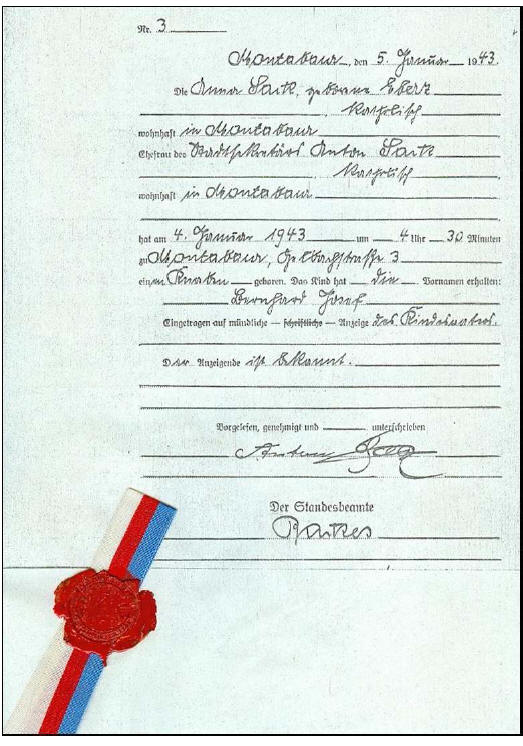 Nr. 3
Montabaur, den 5. Januar 1943.
Die Anna Sack, geborene Eberz
, katholisch
wohnhaft in Montabaur
Ehefrau des Stadtsekretärs Anton Sack
, katholisch
wohnhaft in Montabaur
hat am 4. Januar 1943 um 4 Uhr 30 Minuten
zu Montabaur, Gelbachstrasse 3
einen Knaben geboren. Das Kind hat die Vornamen erhalten:
Bernhard Josef
Eingetragen auf mündliche — schriftliche — Anzeige des Kindesvaters.
Der Anzeigende ist bekannt.
Vorgelesen, genehmigt und unterschrieben
Anton
Der Standesbeamte